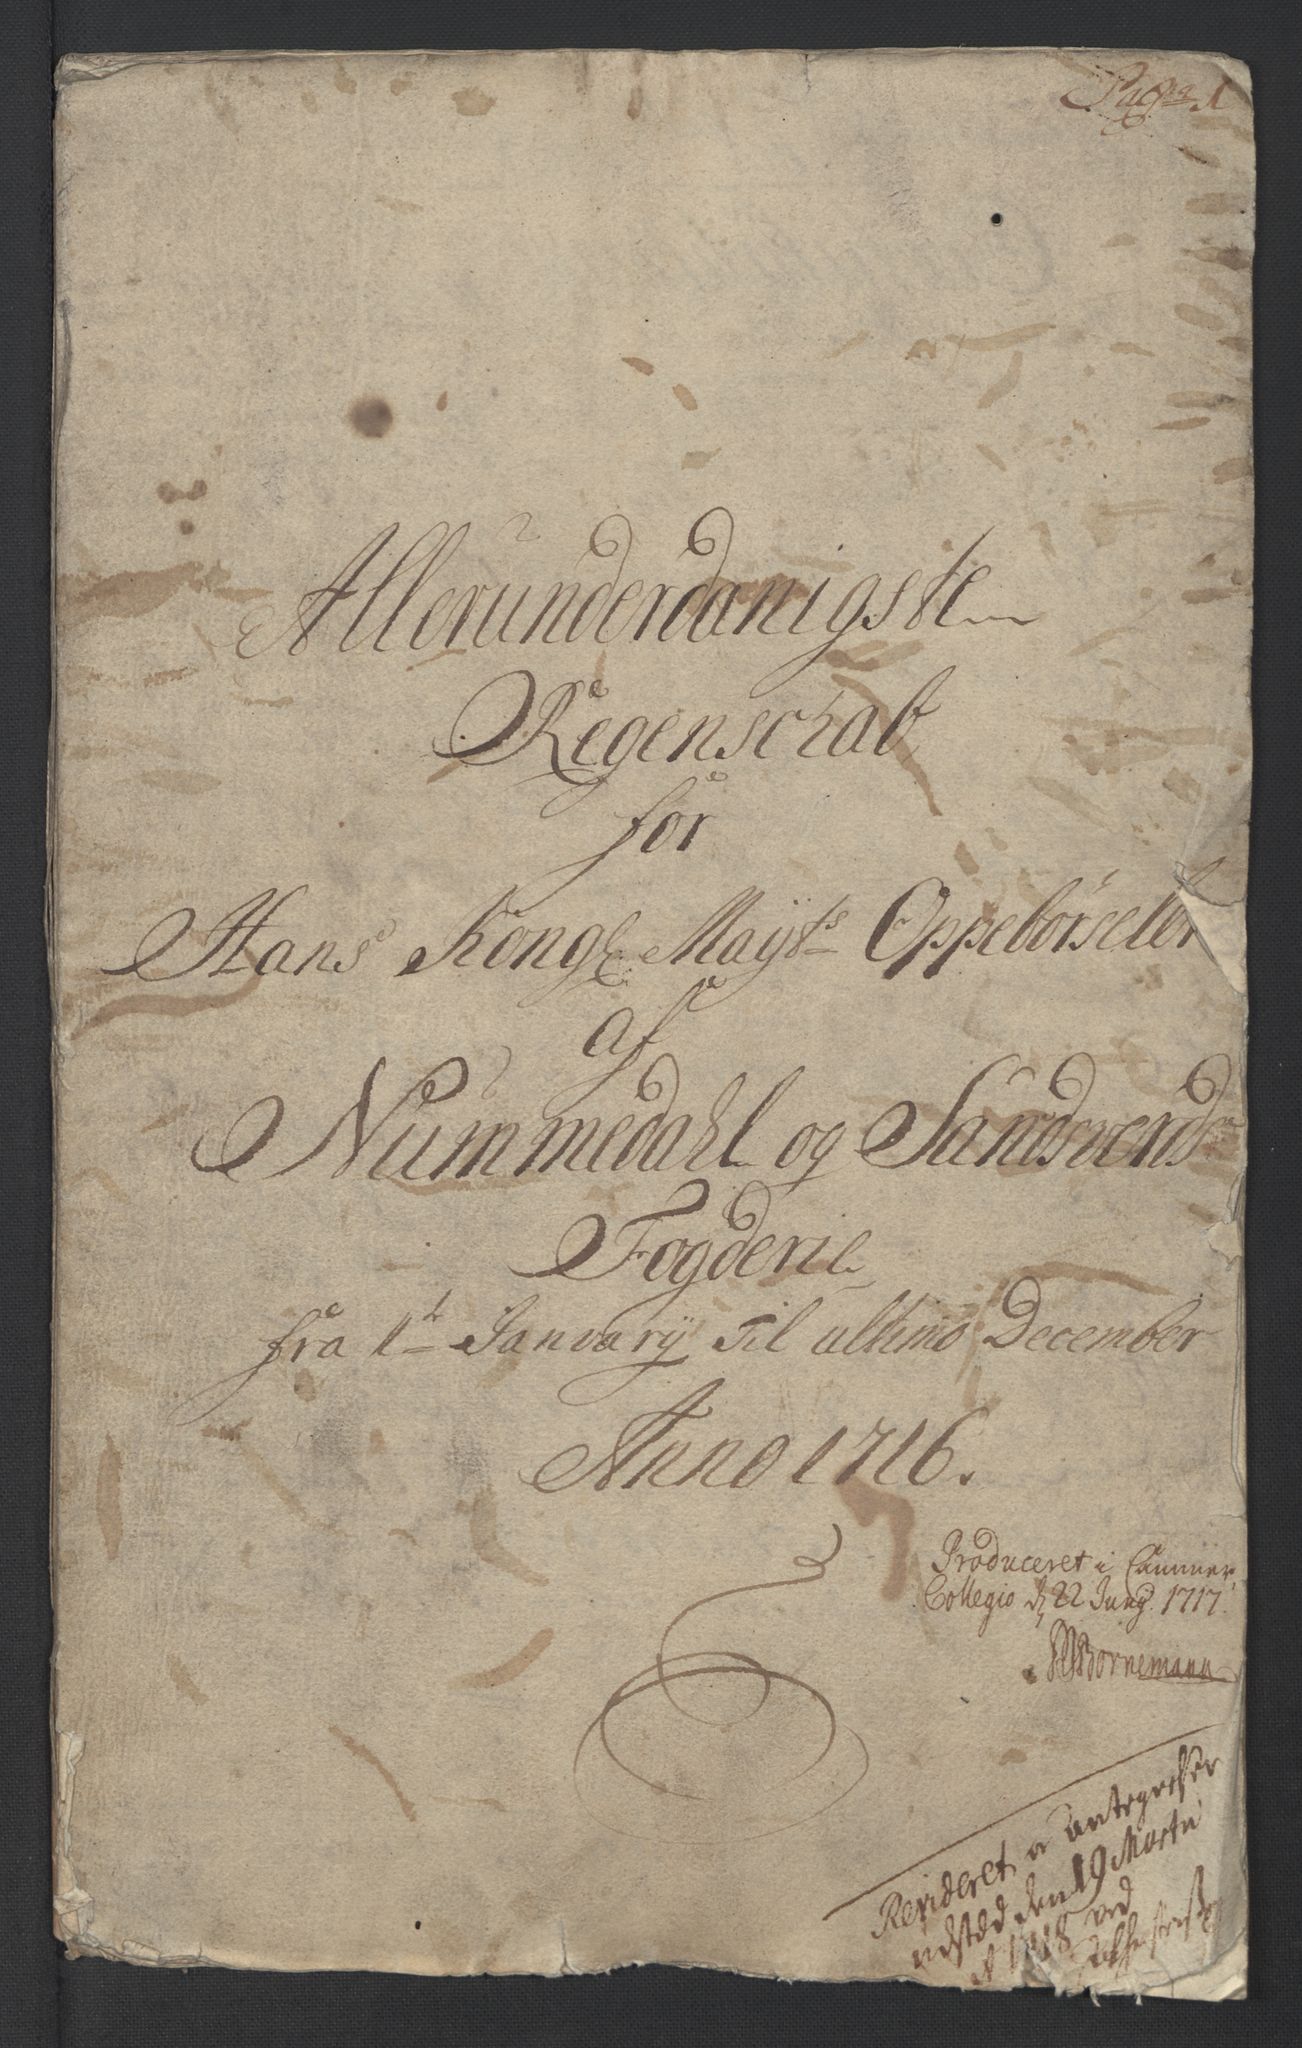 Pagna 1
Allerunderdanigste
Regenschab
for
Hans Kongl Mayts Oppebørseller
af
Nummedahl og Sandsverds
Fogderie
fra 1t January Til ultimo December
Anno 1716.
Produceret i Cammer
Collegio d 22 Juny 1717.
Bornemann
Revideret og Antegnelser
udsted den 19 Marty
Ao 1718 ved